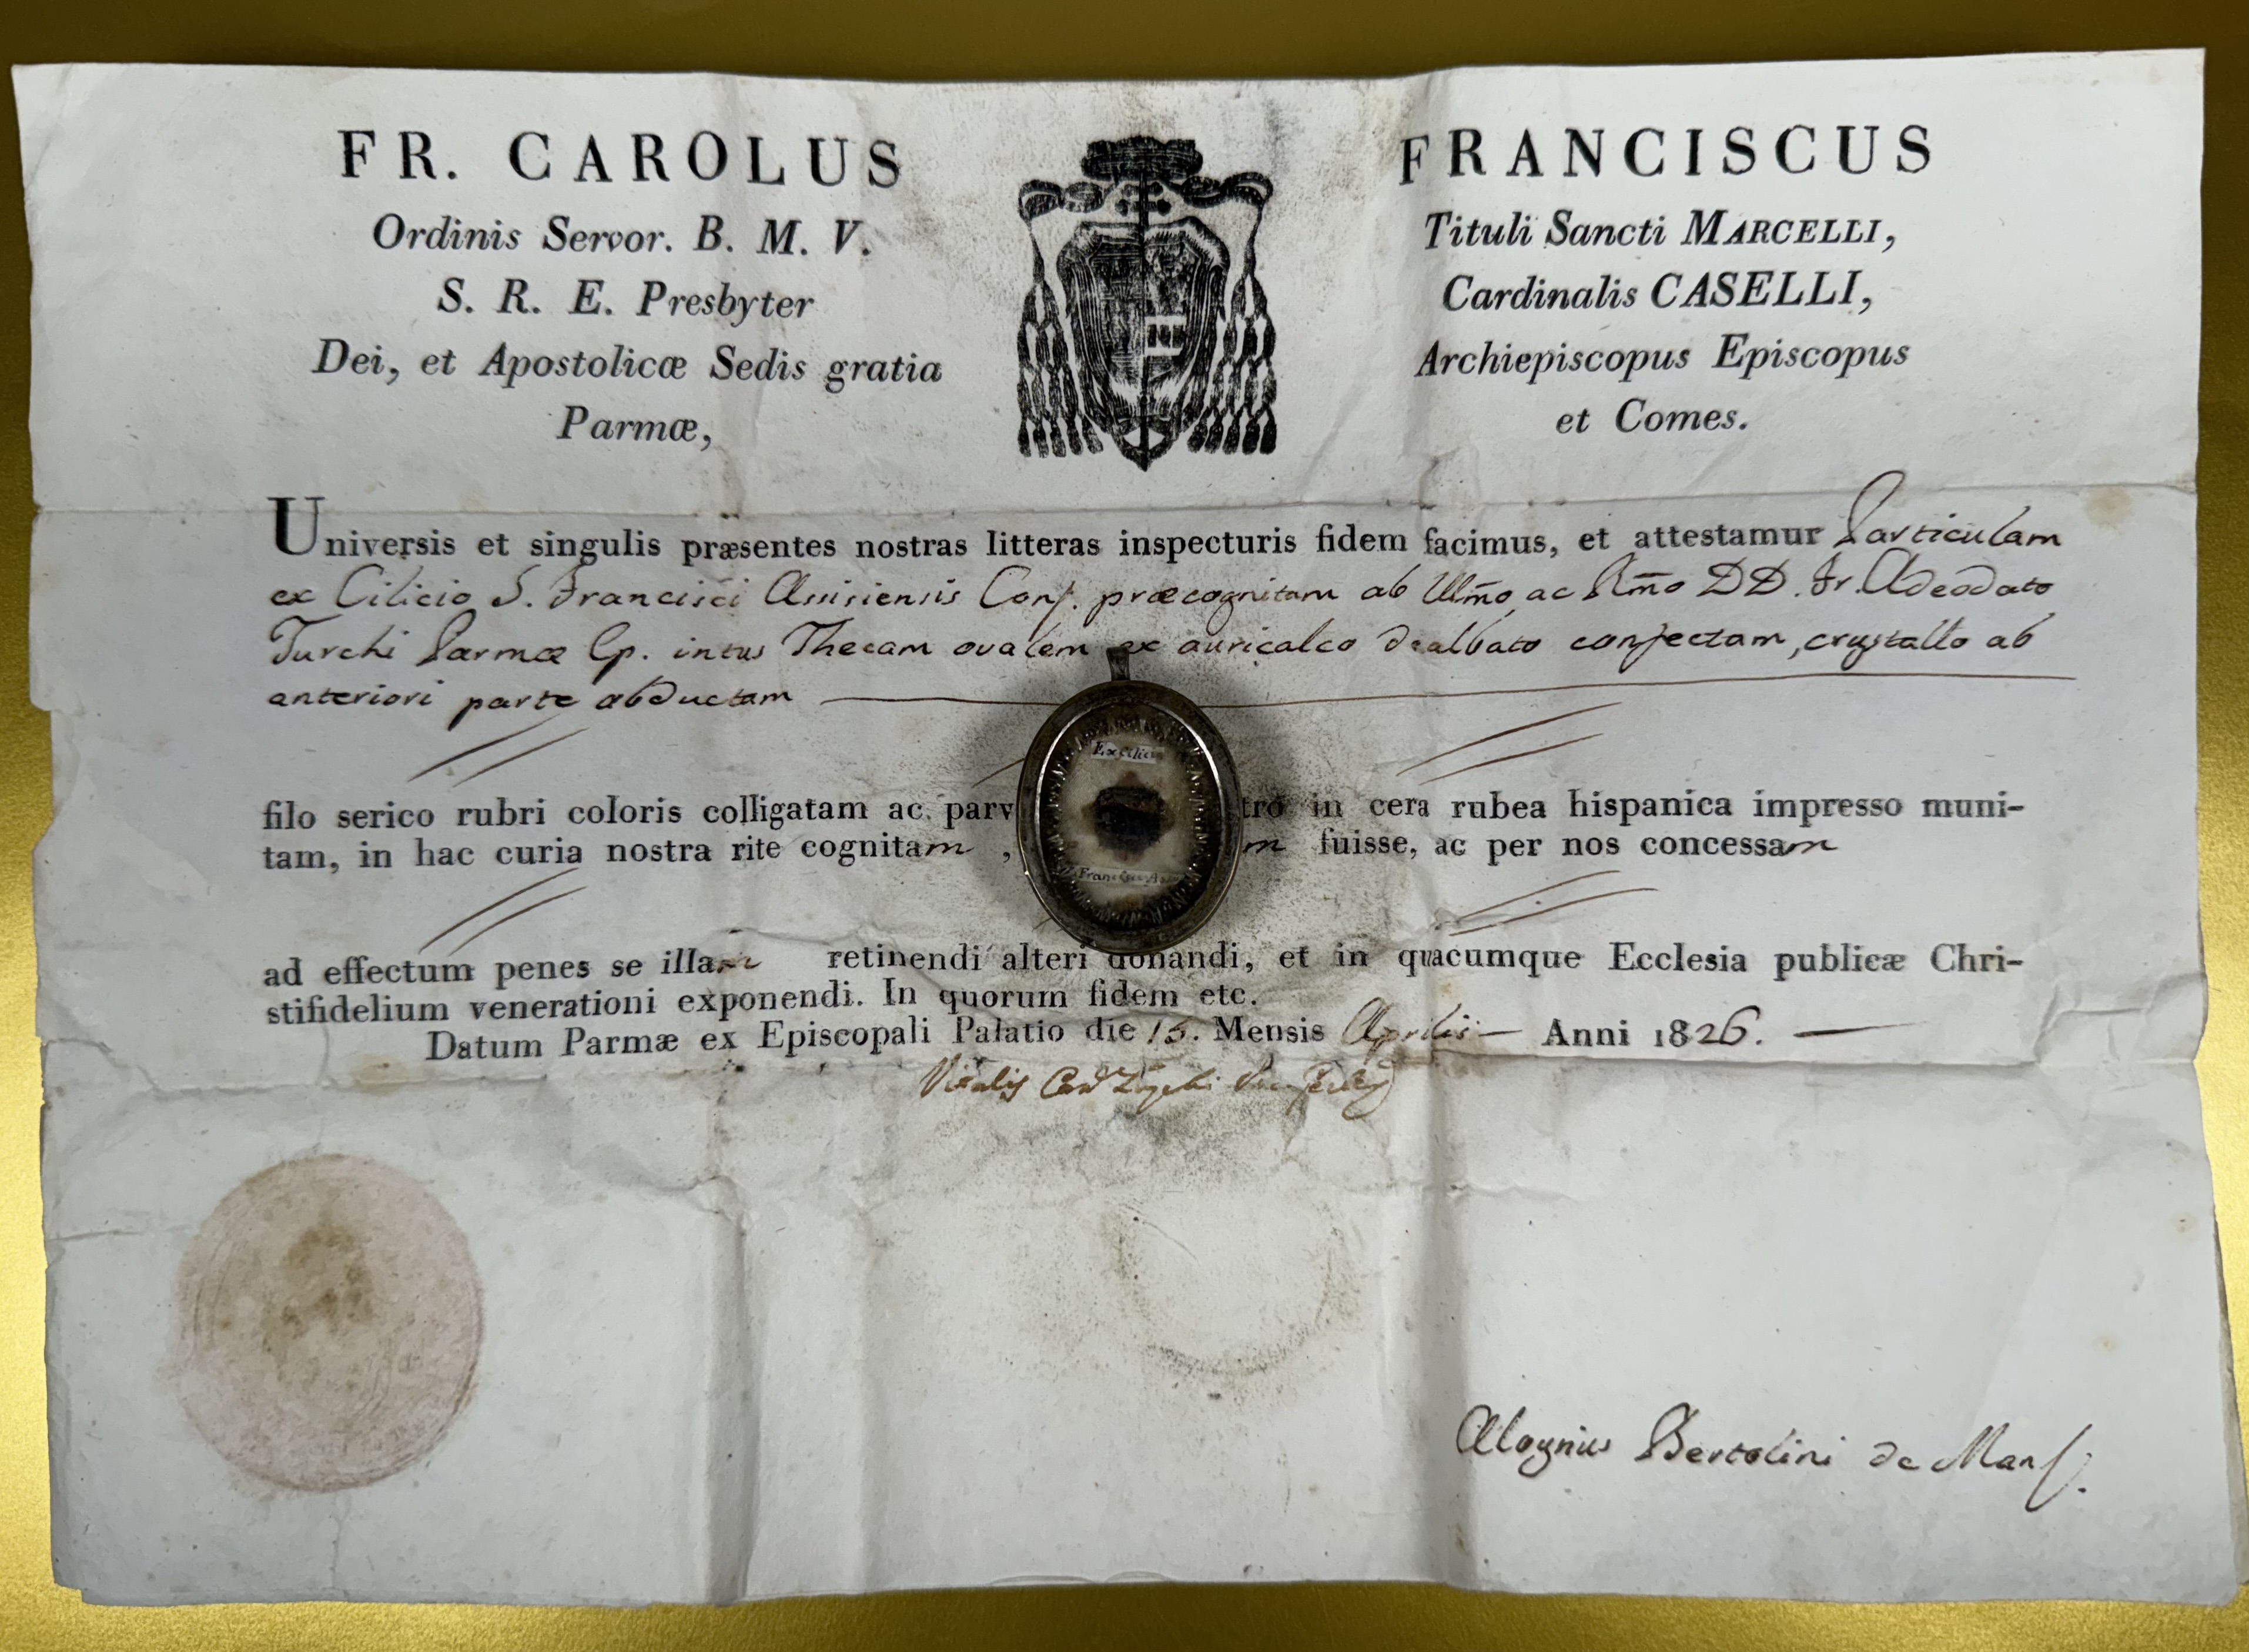 FR. CAROLUS FRANCISCUS
Ordinis Servor. B. M. V. Tituli Sancti MARCELLI,
S. R. E. Presbyter Cardinalis CASELLI,
Dei, et Apostolicæ Sedis gratia Archiepiscopus Episcopus
Parmæ, et Comes.
Universis et singulis præsentes nostras litteras inspecturis fidem facimus, et attestamur Particulam
ex Cilicio S. Francisci Assisiensis Conf. præcognitam ab Illm̃o ac Rm̃o DD. Fr. Adeodato
Turchi Parmæ Ep. intus Thecam ovalem ex auricalco dealbato confectam, crystallo ab
anteriori parte abductam
Ex Cilicio
filo serico rubri coloris colligatam ac parv tro in cera rubea hispanica impresso muni-
tam, in hac curia nostra rite cognitam, m fuisse, ac per nos concessam
S. Francisci
ad effectum penes se illam retinendi alteri donandi, et in quacumque Ecclesia publicæ Chri-
stifidelium venerationi exponendi. In quorum fidem etc.
Datum Parmæ ex Episcopali Palatio die 15. Mensis Aprilis — Anni 1826. —
Vitalis
Aloysius Bertolini de Mans.